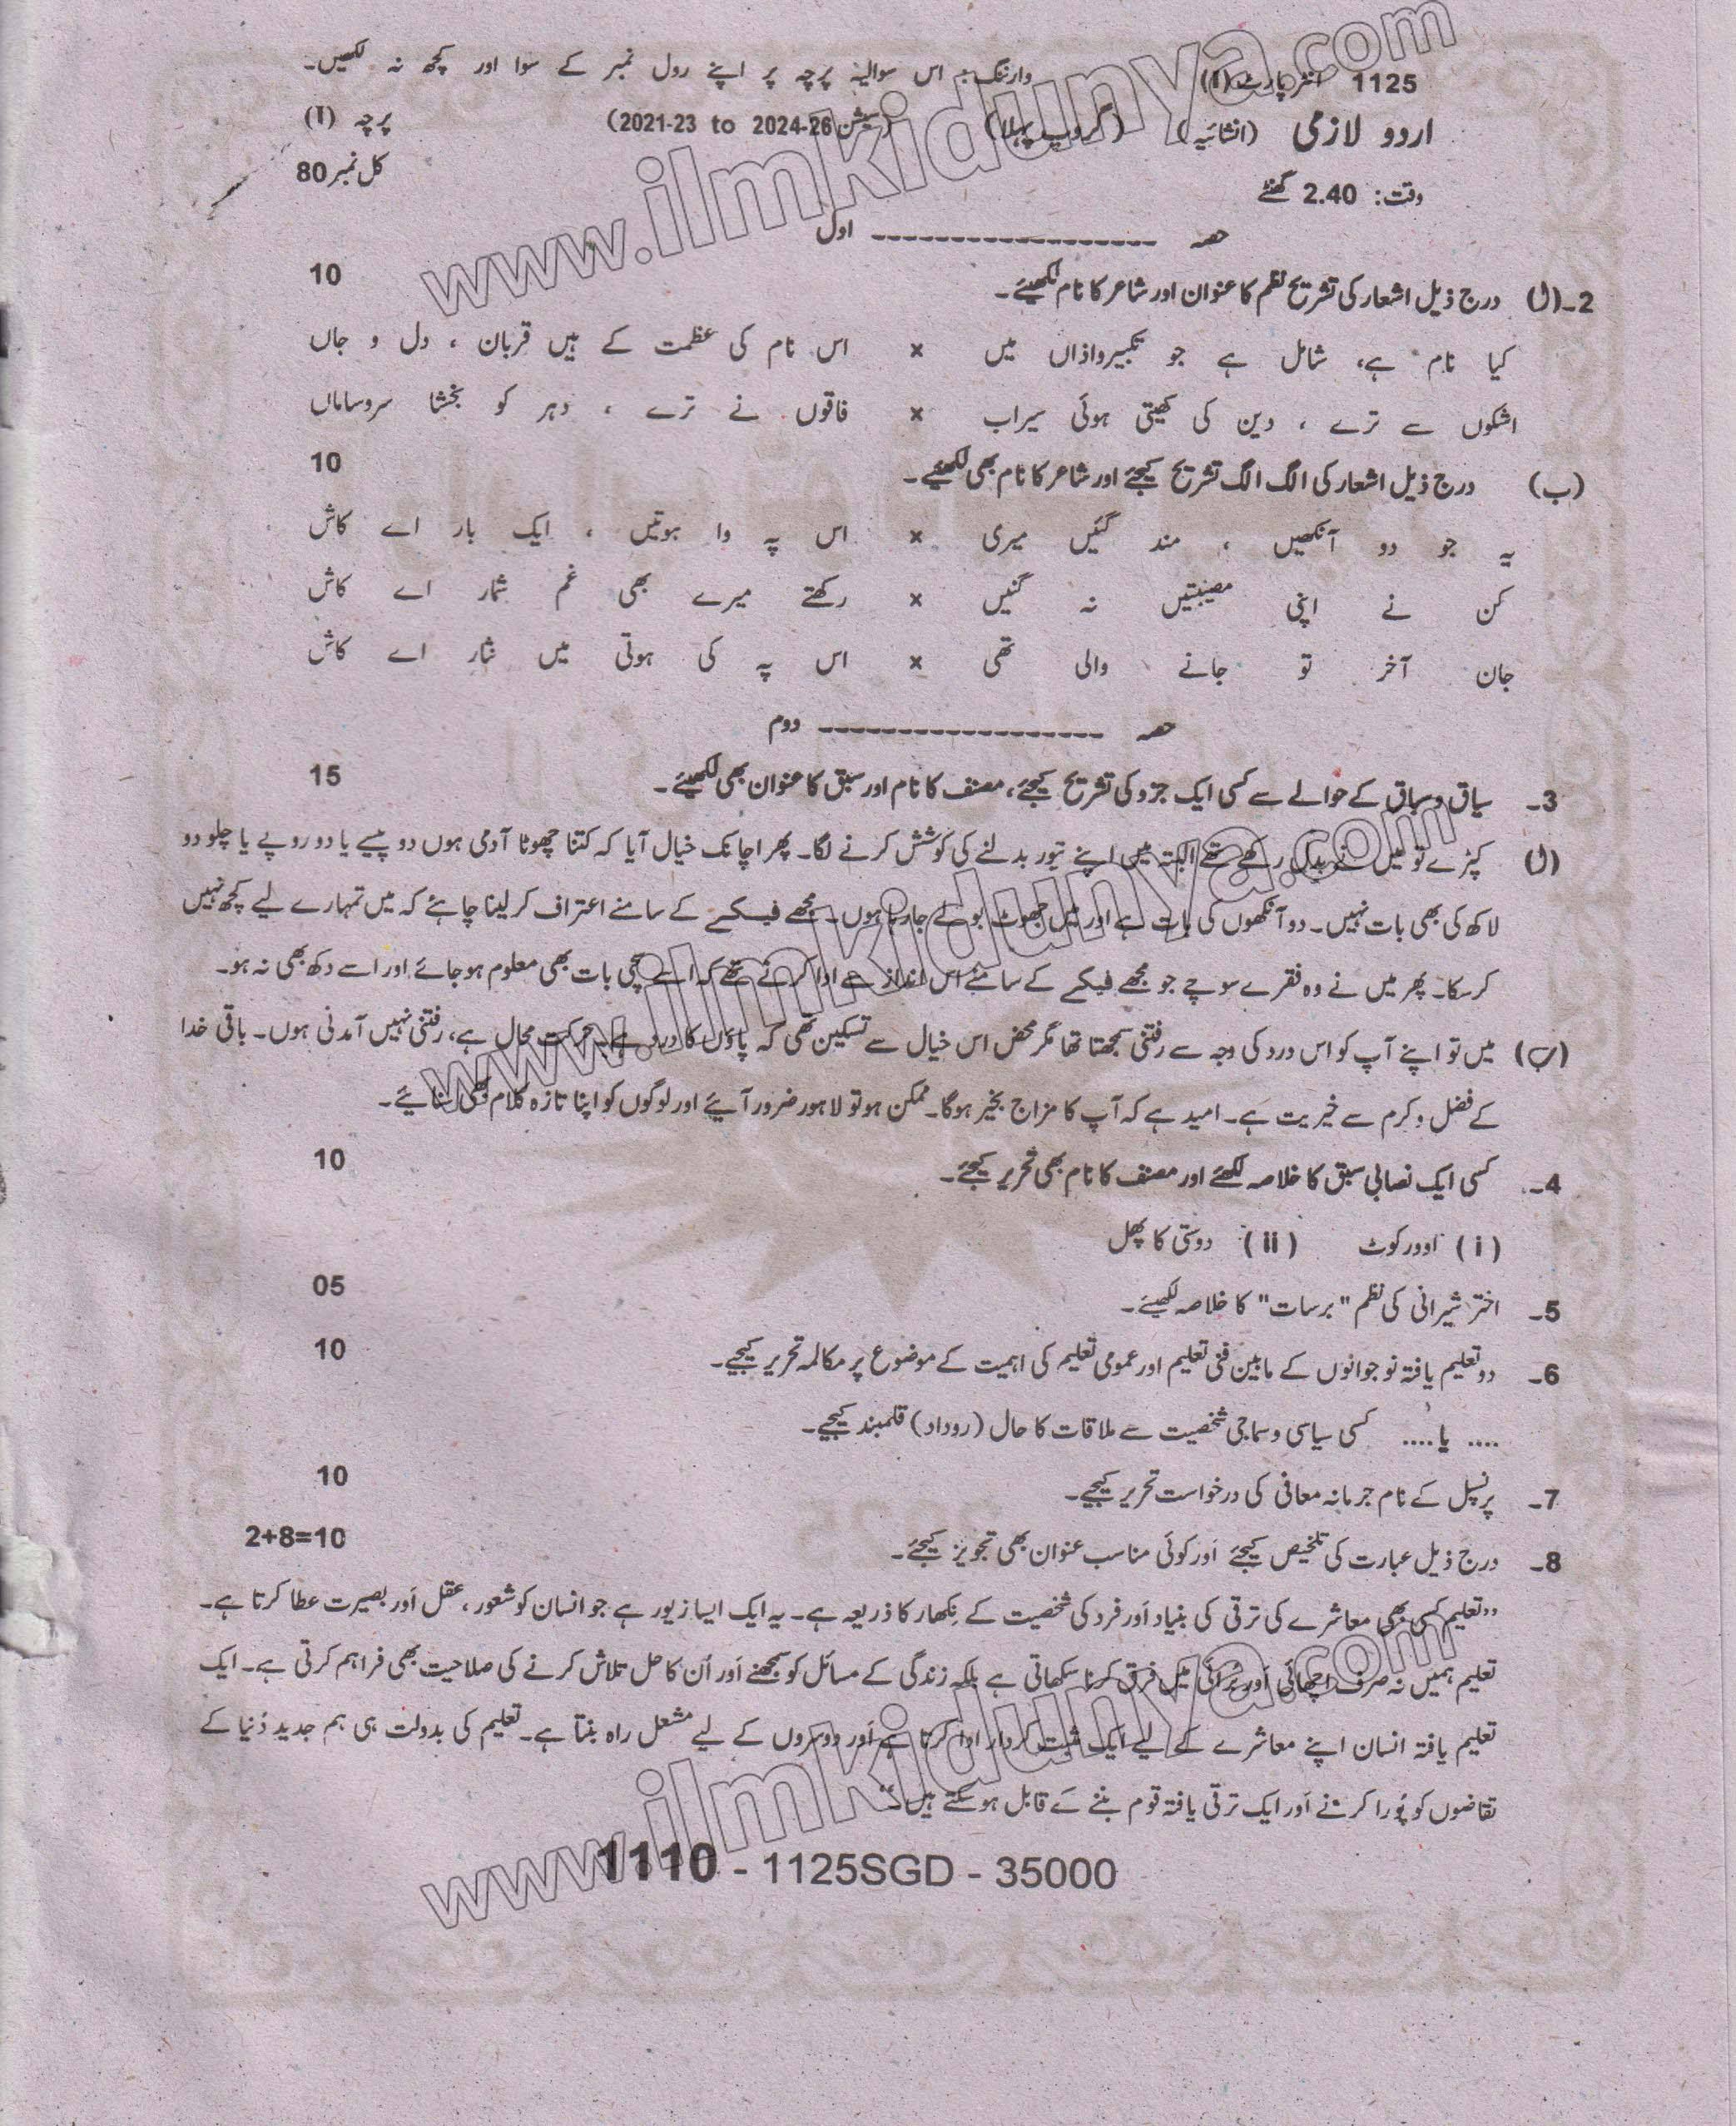 1125 انٹر پارٹ (I) وارننگ:۔ اس سوالیہ پرچہ پر اپنے رول نمبر کے سوا اور کچھ نہ لکھیں۔
اردو لازمی (انشائیہ) (گروپ پہلا) (سیشن 2021-23 to 2024-26) پرچہ (I)
وقت: 2.40 گھنٹے کل نمبر 80
حصہ ------------------ اول
2۔(ا) درج ذیل اشعار کی تشریح نظم کا عنوان اور شاعر کا نام لکھیئے۔ 10
کیا نام ہے، شامل ہے جو تکبیر واذاں میں × اس نام کی عظمت کے ہیں قرباں ، دل و جاں
اشکوں سے ترے ، دین کی کھیتی ہوئی سیراب × فاقوں نے ترے ، دہر کو بخشا سروساماں
(ب) درج ذیل اشعار کی الگ الگ تشریح کیجئے اور شاعر کا نام بھی لکھیئے۔ 10
یہ جو دو آنکھیں ، مند گئیں میری × اس پہ وا ہوتیں ، ایک بار اے کاش
کن نے اپنی مصیبتیں نہ گنیں × رکھتے میرے بھی غم شمار اے کاش
جان آخر تو جانے والی تھی × اس پہ کی ہوتی میں نثار اے کاش
حصہ ------------------ دوم
3۔ سیاق و سباق کے حوالے سے کسی ایک جزو کی تشریح کیجئے، مصنف کا نام اور سبق کا عنوان بھی لکھیئے۔ 15
(ا) کپڑے تو میں نے بدل رکھے تھے البتہ میں اپنے تیور بدلنے کی کوشش کرنے لگا۔ پھر اچانک خیال آیا کہ کتنا چھوٹا آدمی ہوں دو پیسے یا دو روپے یا چلو دو
لاکھ کی بھی بات نہیں۔ دو آنکھوں کی بات ہے اور میں جھوٹ بولے جا رہا ہوں۔ مجھے فیکے کے سامنے اعتراف کر لینا چاہئے کہ میں تمہارے لیے کچھ نہیں
کر سکا۔ پھر میں نے وہ فقرے سوچے جو مجھے فیکے کے سامنے اس انداز سے ادا کرنے تھے کہ اسے سچی بات بھی معلوم ہو جائے اور اسے دکھ بھی نہ ہو۔
(ب) میں تو اپنے آپ کو اس درد کی وجہ سے رفتنی سمجھتا تھا مگر محض اس خیال سے تسکین تھی کہ پاؤں کا درد ہے۔ حرکت محال ہے، رفتنی نہیں آمدنی ہوں۔ باقی خدا
کے فضل و کرم سے خیریت ہے۔ امید ہے کہ آپ کا مزاج بخیر ہوگا۔ ممکن ہو تو لاہور ضرور آیئے اور لوگوں کو اپنا تازہ کلام بھی سنایئے۔
4۔ کسی ایک نصابی سبق کا خلاصہ لکھئے اور مصنف کا نام بھی تحریر کیجئے۔ 10
(i) اوور کوٹ (ii) دوستی کا پھل
5۔ اختر شیرانی کی نظم "برسات" کا خلاصہ لکھیئے۔ 05
6۔ دو تعلیم یافتہ نوجوانوں کے مابین فنی تعلیم اور عمومی تعلیم کی اہمیت کے موضوع پر مکالمہ تحریر کیجیے۔ 10
.... یا .... کسی سیاسی و سماجی شخصیت سے ملاقات کا حال (روداد) قلمبند کیجیے۔
7۔ پرنسپل کے نام جرمانہ معافی کی درخواست تحریر کیجیے۔ 10
8۔ درج ذیل عبارت کی تلخیص کیجئے اَور کوئی مناسب عنوان بھی تجویز کیجئے۔ 2+8=10
”تعلیم کسی بھی معاشرے کی ترقی کی بنیاد اَور فرد کی شخصیت کے نِکھار کا ذریعہ ہے۔ یہ ایک ایسا زیور ہے جو انسان کو شعور، عقل اَور بصیرت عطا کرتا ہے۔
تعلیم ہمیں نہ صرف اچھائی اَور بُرائی میں فرق کرنا سکھاتی ہے بلکہ زندگی کے مسائل کو سمجھنے اَور اُن کا حل تلاش کرنے کی صلاحیت بھی فراہم کرتی ہے۔ ایک
تعلیم یافتہ انسان اپنے معاشرے کے لیے ایک مثبت کردار ادا کرتا ہے اَور دوسروں کے لیے مشعل راہ بنتا ہے۔ تعلیم کی بدولت ہی ہم جدید دُنیا کے
تقاضوں کو پُورا کرنے اَور ایک ترقی یافتہ قوم بننے کے قابل ہو سکتے ہیں۔“
1110 - 1125SGD - 35000
www.ilmkidunya.com
www.ilmkidunya.com
www.ilmkidunya.com